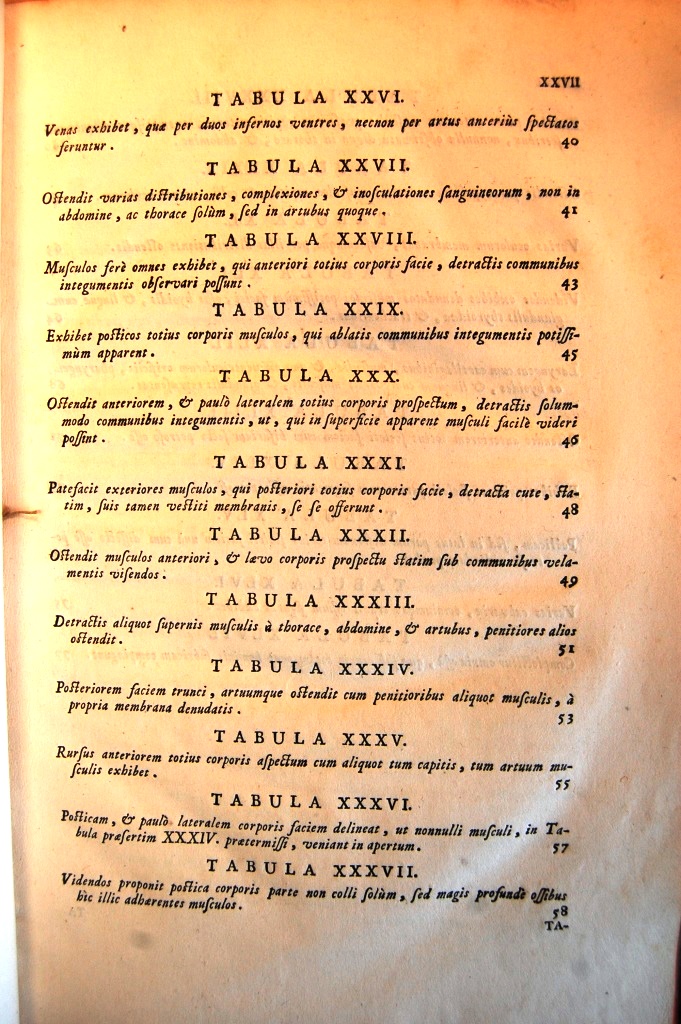 XXVII
TABULA XXVI.
Venas exhibet, quæ per duos infernos ventres, necnon per artus anteriùs ſpectatos
feruntur. 40
TABULA XXVII.
Oſtendit varias diſtributiones, complexiones, & inoſculationes ſanguineorum, non in
abdomine, ac thorace ſolùm, ſed in artubus quoque. 41
TABULA XXVIII.
Muſculos ferè omnes exhibet, qui anteriori totius corporis facie, detractis communibus
integumentis obſervari poſſunt. 43
TABULA XXIX.
Exhibet poſticos totius corporis muſculos, qui ablatis communibus integumentis potiſſi-
mùm apparent. 45
TABULA XXX.
Oſtendit anteriorem, & paulò lateralem totius corporis proſpectum, detractis ſolum-
modo communibus integumentis, ut, qui in ſuperficie apparent muſculi facilè videri
poſſint. 46
TABULA XXXI.
Patefacit exteriores muſculos, qui poſteriori totius corporis facie, detracta cute, ſta-
tim, ſuis tamen veſtiti membranis, ſe ſe offerunt. 48
TABULA XXXII.
Oſtendit muſculos anteriori, & lævo corporis proſpectu ſtatim ſub communibus vela-
mentis viſendos. 49
TABULA XXXIII.
Detractis aliquot ſupernis muſculis à thorace, abdomine, & artubus, penitiores alios
oſtendit. 51
TABULA XXXIV.
Poſteriorem faciem trunci, artuumque oſtendit cum penitioribus aliquot muſculis, à
propria membrana denudatis. 53
TABULA XXXV.
Rurſus anteriorem totius corporis aſpectum cum aliquot tum capitis, tum artuum mu-
ſculis exhibet. 55
TABULA XXXVI.
Poſticam, & paulò lateralem corporis faciem delineat, ut nonnulli muſculi, in Ta-
bula præſertim XXXIV. prætermiſſi, veniant in apertum. 57
TABULA XXXVII.
Videndos proponit poſtica corporis parte non colli ſolùm, ſed magis profundè oſſibus
hìc illic adhærentes muſculos. 58
TA-